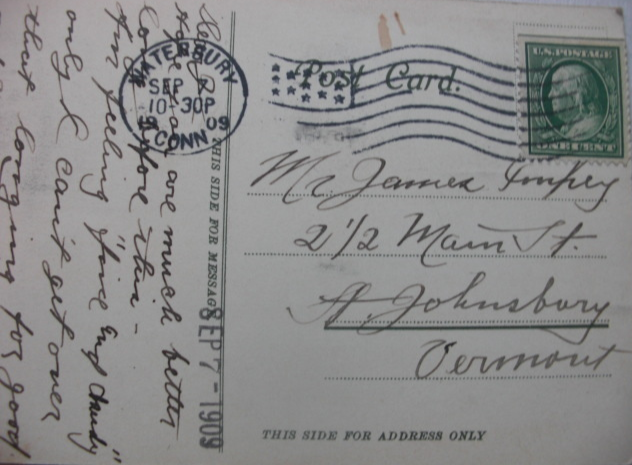 WATERBURY
SEP
10-30P
1909
CONN
Post Card.
U.S. POSTAGE
ONE CENT
Mr. James Impey
2 1/2 Main St.
St. Johnsbury
Vermont
THIS SIDE FOR ADDRESS ONLY
THIS SIDE FOR MESSAGE
SEP 7 - 1909
Hope you are much better
before this -
I'm feeling "fine and dandy"
only I can't get over
that longing for good